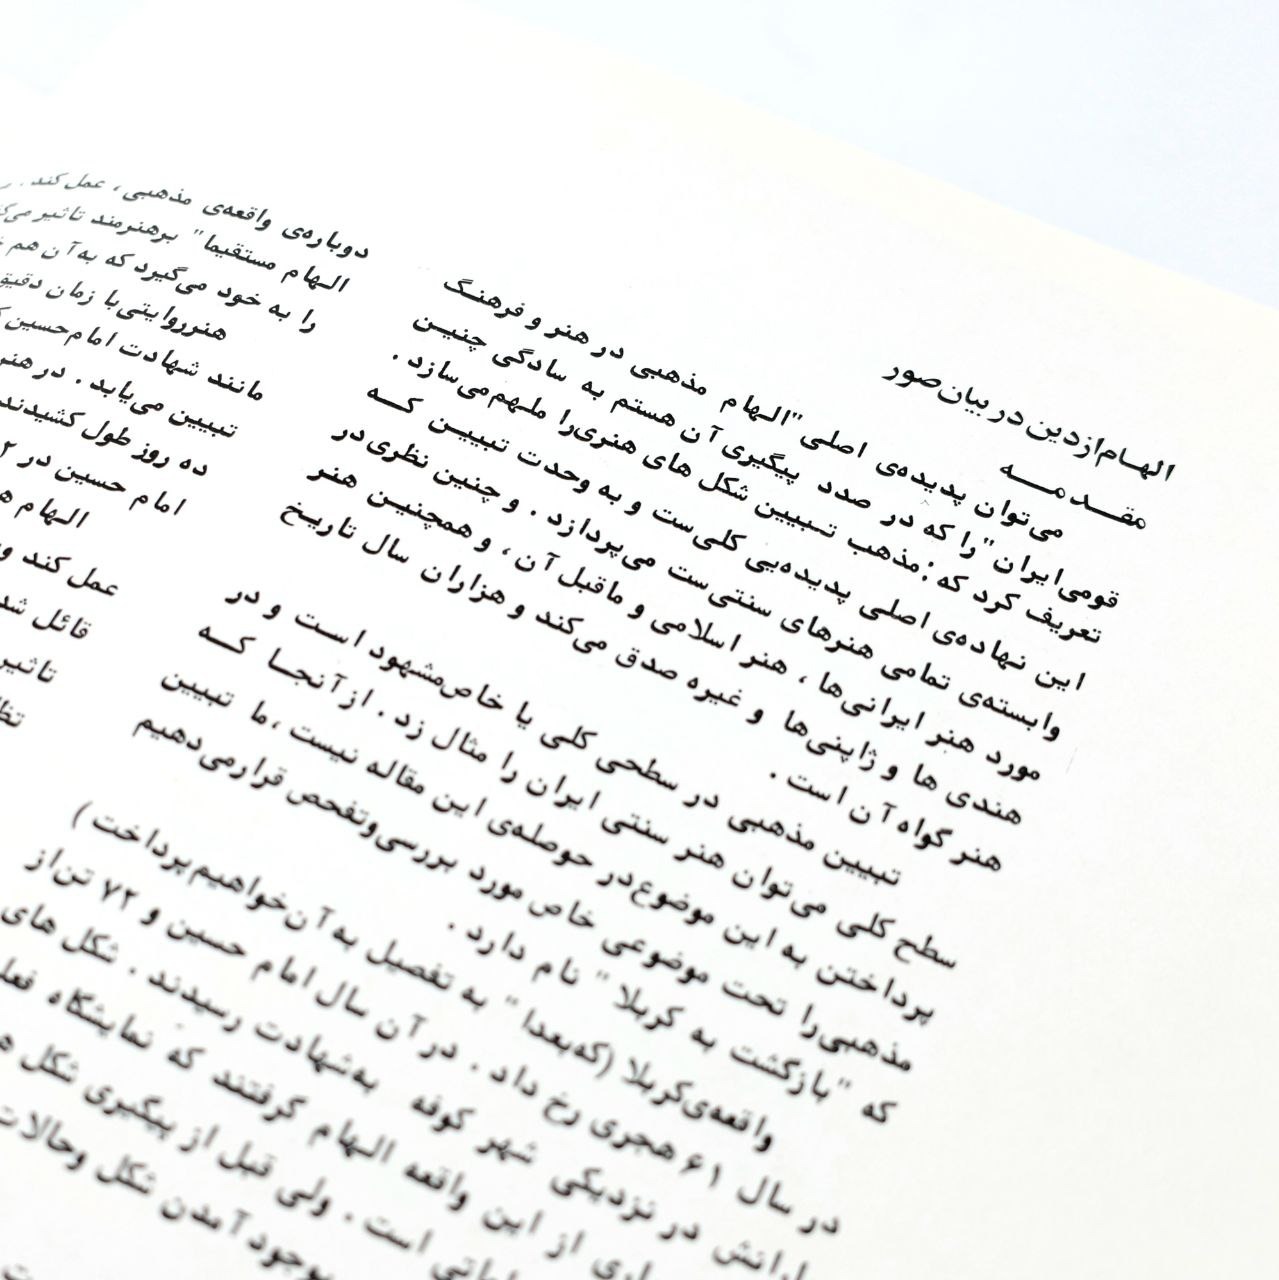 الهام از دین در بیان صور
مقدمه
می‌توان پدیده‌ی اصلی "الهام مذهبی در هنر و فرهنگ
قومی ایران" را که در صدد پیگیری آن هستم به سادگی چنین
تعریف کرد که: مذهب تبیین شکل های هنری را ملهم می‌سازد.
این نهاده‌ی اصلی پدیده‌یی کلی‌ست و به وحدت تبیین که
وابسته‌ی تمامی هنرهای سنتی‌ست می‌پردازد. و چنین نظری در
مورد هنر ایرانی‌ها، هنر اسلامی و ماقبل آن، و همچنین هنر
هندی ها و ژاپنی‌ها و غیره صدق می‌کند و هزاران سال تاریخ
هنر گواه آن است.
تبیین مذهبی در سطحی کلی یا خاص مشهود است و در
سطح کلی می‌توان هنر سنتی ایران را مثال زد. از آنجا که
پرداختن به این موضوع در حوصله‌ی این مقاله نیست، ما تبیین
مذهبی را تحت موضوعی خاص مورد بررسی و تفحص قرار می‌دهیم
که "بازگشت به کربلا" نام دارد.
واقعه‌ی کربلا (که بعدا" به تفصیل به آن خواهیم پرداخت)
در سال ۶۱ هجری رخ داد. در آن سال امام حسین و ۷۲ تن از
در نزدیکی شهر کوفه به شهادت رسیدند. شکل های
از این واقعه الهام گرفتند که نمایشگاه
است. ولی قبل از پیگیری شکل
بوجود آمدن شکل و حالات
دوباره‌ی واقعه‌ی مذهبی، عمل کند.
الهام مستقیما" بر هنرمند تاثیر
را به خود می‌گیرد که به آن هم
هنر روایتی با زمان دقیق
مانند شهادت امام حسین
تبیین می‌یابد. در هنر
ده روز طول کشیدند
امام حسین در
الهام
عمل کند
قائل
تاثیر